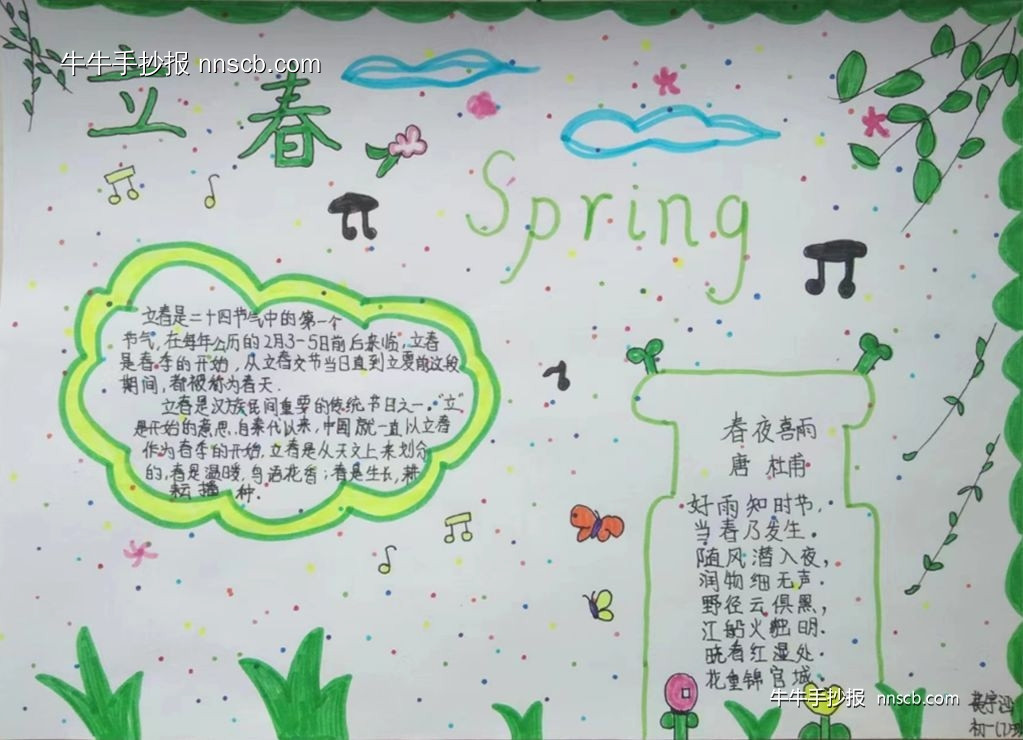 牛牛手抄报 nnscb.com
立春
Spring
立春是二十四节气中的第一个
节气,在每年公历的2月3-5日前后来临,立春
是春季的开始,从立春交节当日直到立夏前这段
期间,都被称为春天.
立春是汉族民间重要的传统节日之一."立"
是开始的意思.自秦代以来,中国就一直以立春
作为春季的开始.立春是从天文上来划分
的,春是温暖,鸟语花香;春是生长,耕
耘播种.
春夜喜雨
唐 杜甫
好雨知时节,
当春乃发生.
随风潜入夜,
润物细无声.
野径云俱黑,
江船火独明.
晓看红湿处.
花重锦官城.
牛牛手抄报 nnscb.com
初一(7)